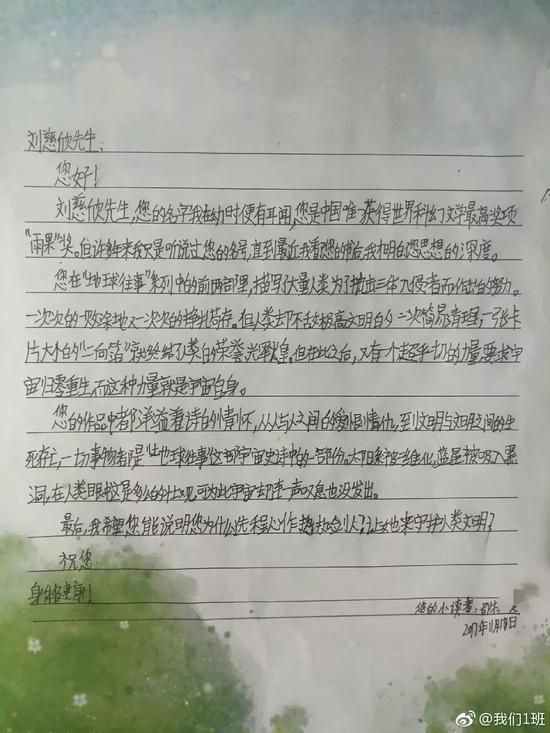 刘慈欣先生:
您好!
刘慈欣先生,您的名字我在幼时便有耳闻,您是中国唯一获得世界科幻文学最高奖项
"雨果"奖。但许多年来我只是听说过您的名号,直到最近我看您的书后,我才明白您思想的深度。
您在"地球往事"系列中的前两部里,描写了大量人类为了抵抗三体入侵者而作出的努力。
一次次的一败涂地又一次次的挣扎苟存。但人类却不敌极高文明的一次简易清理,一张卡
片大小的"二向箔"就终结了人类的荣誉光辉与辉煌。但在此之后,又有个超乎一切的力量要求宇
宙归零重生,而这种力量就是宇宙自身。
您的作品中都洋溢着诗的情怀,从人与人之间的爱恨情仇,到文明与文明之间的生
死存亡,一切事物都是"地球往事"这部宇宙史诗中的一部份。太阳系被二维化,蓝星被吸入黑
洞,在人类眼里这是多么的壮观,可为此宇宙却连一声叹息也没发出。
最后,我希望您能说明您为什么选程心作执剑人?让她来守护人类文明?
祝您
身体健康!
您的小读者:
2017年11月18日
@我们1班